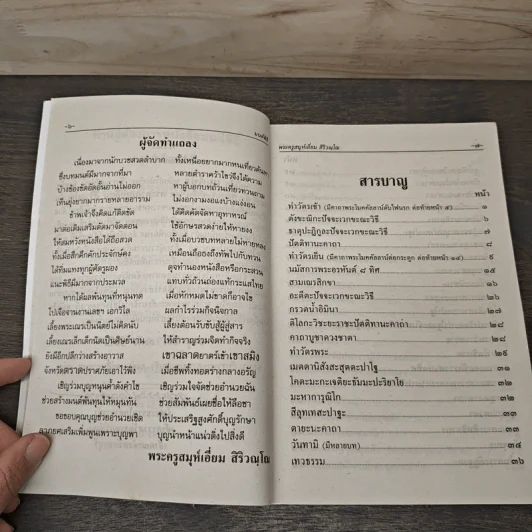 -๖-
ผู้จัดทำแถลง
เนื่องมาจากนักบวชสวดลำบาก ทั้งเหนื่อยยากมากหนเที่ยวค้นหา
ซึ่งบทมนต์มีมากจากที่มา หลายตำราคว้าไขว่จึงได้ความ
บ้างช้องขัดอัดอั้นอ่านไม่ออก หาผู้บอกบทล้วนเที่ยวทวนถาม
เห็นยุ่งยากมากรายหลายอาราม ไม่งอกงามงอแงบ้างแง่งอน
ข้าพเจ้าจึงคิดแก้ติดขัด ได้ดิดคัดจัดหาอุทาหรณ์
มาต่อเติมเสริมตัดมาจัดตอน ใช้อักษรสวดง่ายให้หายงง
ให้สมหวังหนังสือได้ถือสวด ทั้งเมื่อบวชบทหลายไม่ทายหลง
ทั้งเมื่อสึกคึกคักประจักษ์คง เหมือนถือธงถึงทัพไปกับทวน
ได้ทีมแทงทุกผู้ศัตรูผอง ดุจทำนองหนังสือหรือกระสวน
แนะพิธีมีมากจากประมวล แทบทั่วถ้วนถ่องแท้กระแสไทย
หากได้ผลพันทุนที่หนุนทด เมื่อพักหมดไม่ขาดก็อาจไข
ไปเจือจานงานเลขา เอกวิไล ผลกำไรร่วมก็จนิจกาล
เลี้ยงพระเณรเป็นนิตย์ไม่คิดนับ เลี้ยงต้อนรับขับสู้ผู้สู่สาร
เลี้ยงเณรเล็กเด็กนัดเป็นศิษย์นาน ให้สำราญร่วมจิตทำกิจจริง
ยังมีอีกปลีกว่างสร้างอาวาส เขาฉลาดยาตร์เข้าเขาสมิง
จังหวัดตราดปราศภัยเอาไว้พิง เมื่อชีพทิ้งทอดร่างกลางอรัญ
เชิญร่วมบุญหนุนค้ำดังคำไข เชิญร่วมใจจัดช่วยอำนวยฉัน
ช่วยสร้างมนต์พันทุนให้หมุนทัน ช่วยสัมพันธ์เผยชื่อให้ลือชา
ขอขอบคุณบุญช่วยอำนวยเชิด ให้ประเสริฐสูงศักดิ์บุญรักษา
ลาภยศเสริมเพิ่มพูนเพราะบุญพา บุญนำหน้าแน่วดิ่งไปสิ่งดี
พระครูสมุห์เอี่ยม สิริวณฺโณ
พระครูสมุห์เอี่ยม สิริวณฺโณ
-๗-
สารบาญ
หน้า
ทำวัตรเช้า (มีคาถาพระโมคคัลลาน์ดับไฟนรก ต่อท้ายหน้า ๕) ๑
ตังขะณิกะปัจจะเวกขะณะวิธี ๖
ธาตุปะฏิกูละปัจจะเวกขะณะวิธี ๗
ปัตติทานะคาถา ๘
ทำวัตรเย็น (มีคาถาพระโมคคัลลาน์ต่อกระดูก ต่อท้ายหน้า ๑๔) ๙
นมัสการพระอรหันต์ ๘ ทิศ ๑๕
สามเณรสิกขา ๑๖
อะตีตะปัจจะเวกขะณะวิธี ๒๖
กรวดน้ำอิมินา ๒๗
ติโลกะวิชะยะราชะปัตติทานะคาถา ๒๘
คาถาบูชาดวงชาตา ๒๘
ทำวัตรพระ ๒๙
เมตตานิสังสะสุตตะปาโฐ ๓๑
โคตะมะกะเจติยะธัมมะปะริยาโย ๓๒
มะหาการุณิโก ๓๒
สีลุทเทสะปาฐะ ๓๓
ตายะนะคาถา ๓๓
วันทามิ (มีหลายบท) ๓๔
เทวธรรม ๓๖